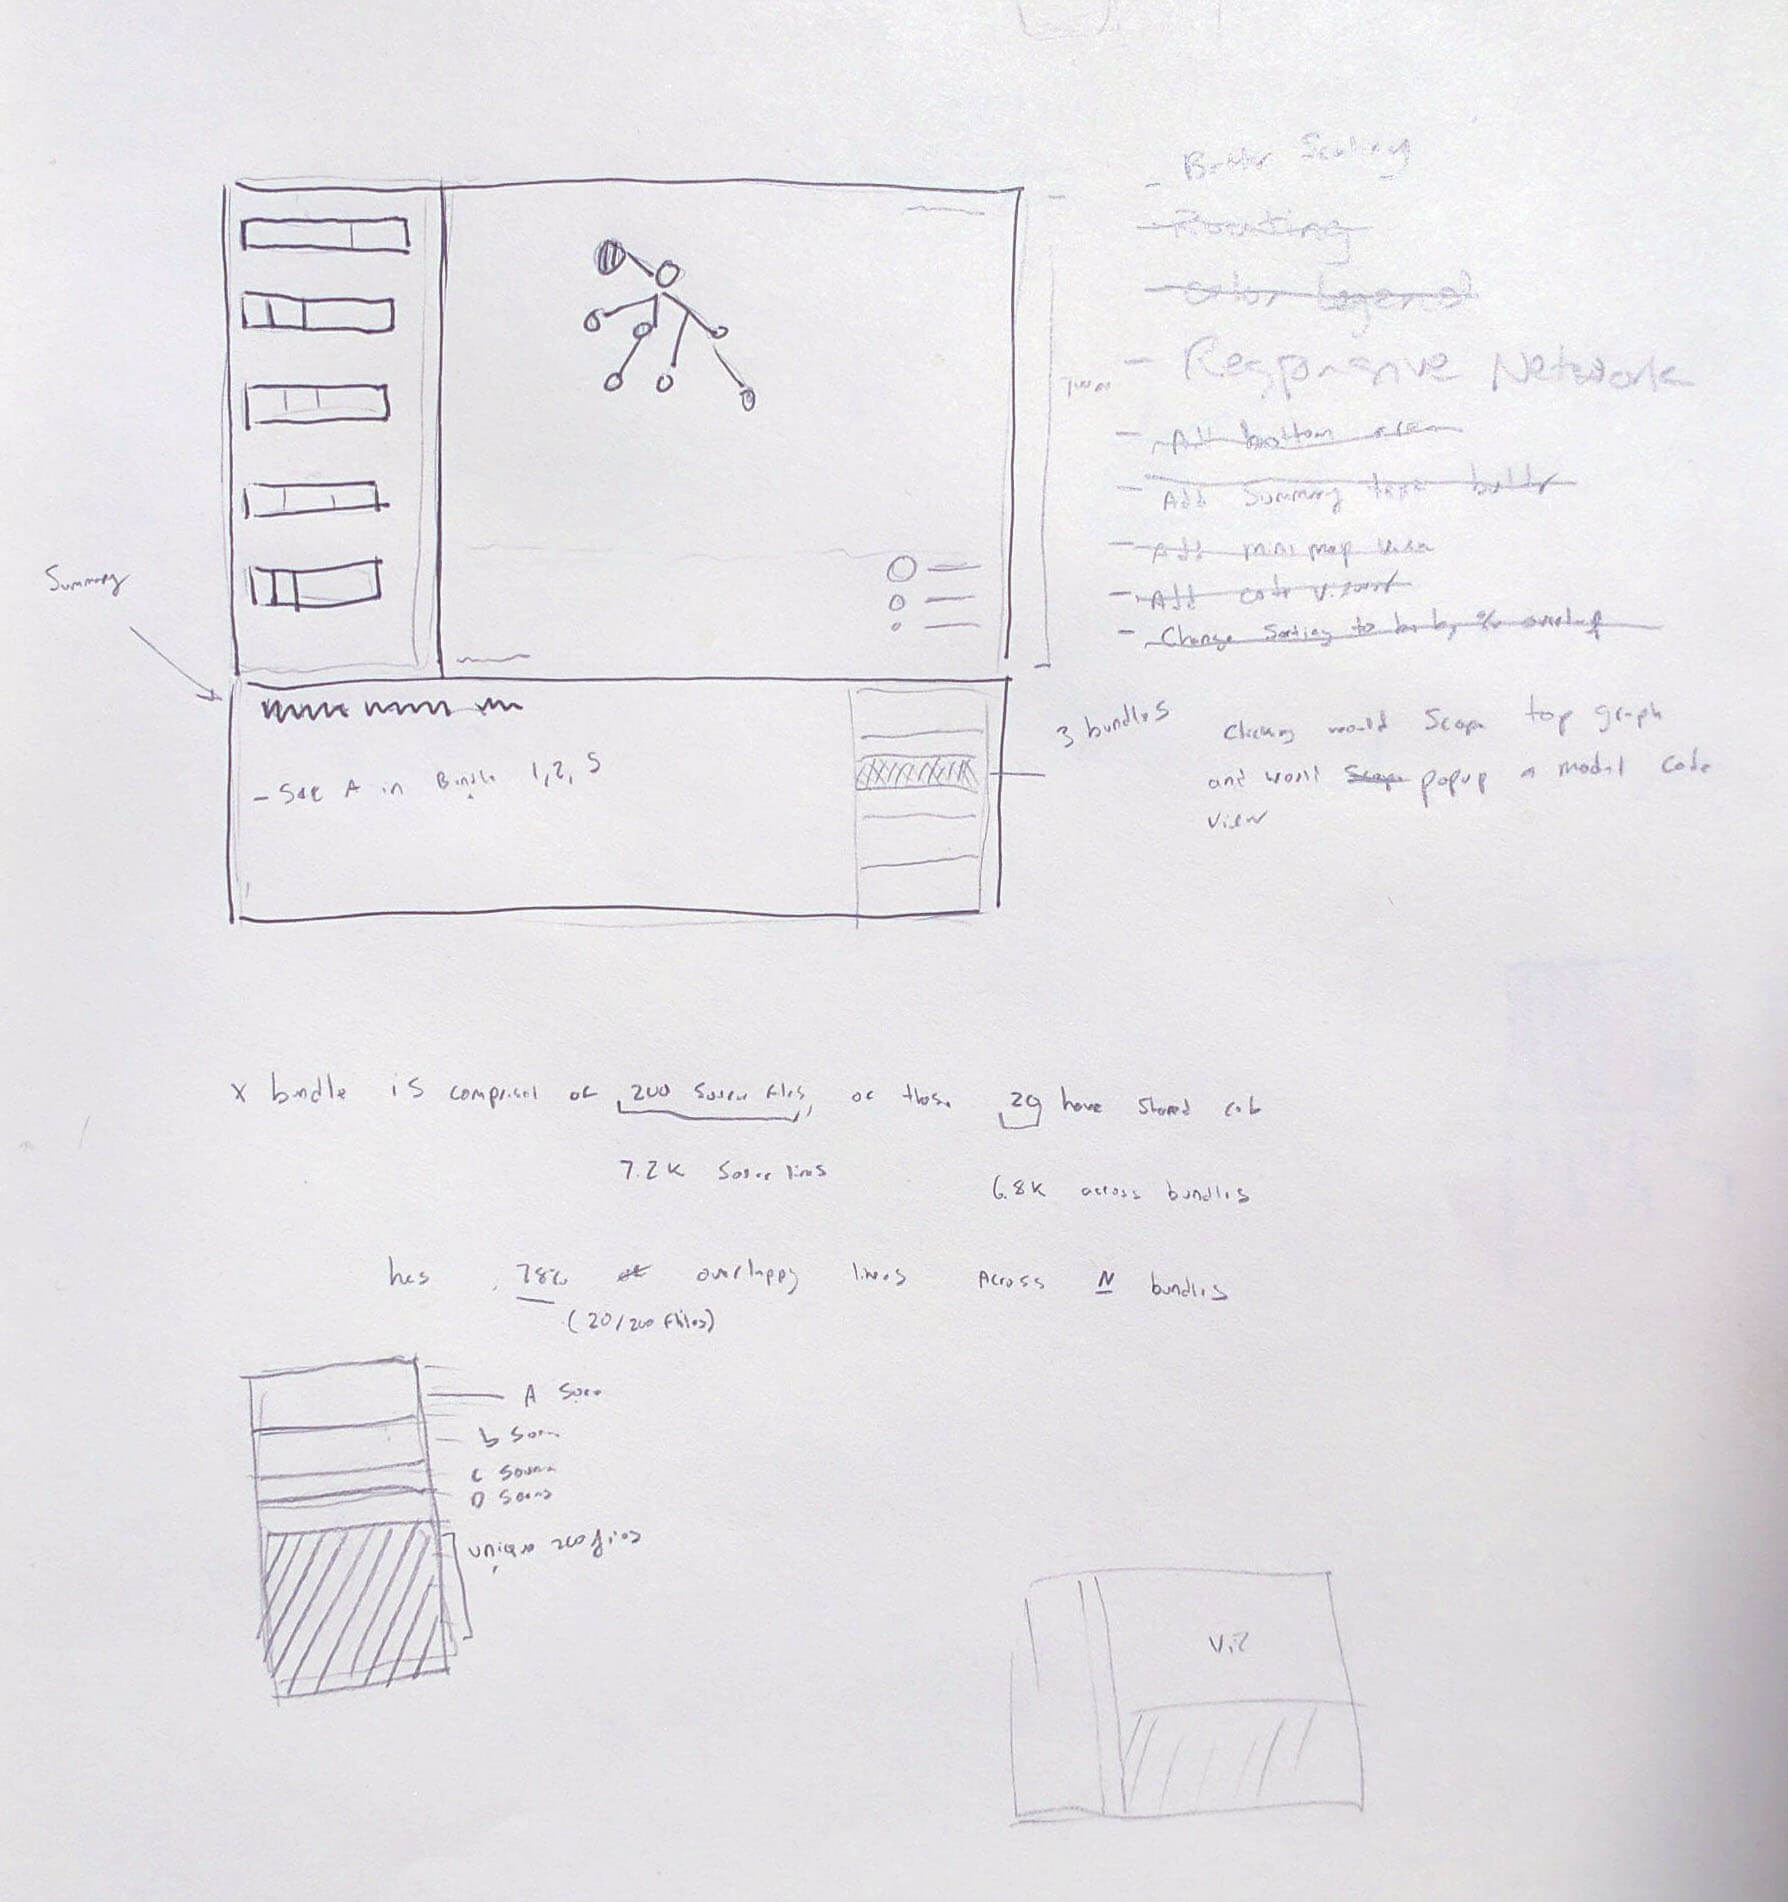 - Better Scaling
- Routing
- Color legend
- Responsive Network
- Add bottom area
- Add Summary text
- Add mini map view
- Add code viewer
- Change Sorting to be by % overlap
Summary
- See A in Bundle 1, 2, 5
3 bundles
Clicking would Scope top graph
and would Scope popup a modal code
view
X bundle is comprised of 200 Source files, of those 20 have shared code
7.2K Source lines
6.8K across bundles
has 78% of overlappy lines Across N bundles
(20/200 files)
A Source
b Source
C Source
D Source
unique
Viz